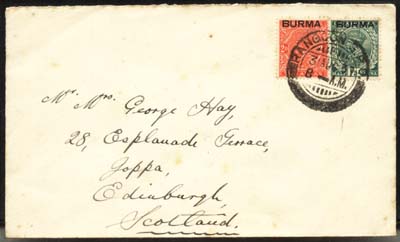 BURMA BURMA
RANGOON
Mr. Mrs. George Hay,
28, Esplanade Terrace,
Joppa,
Edinburgh,
Scotland.